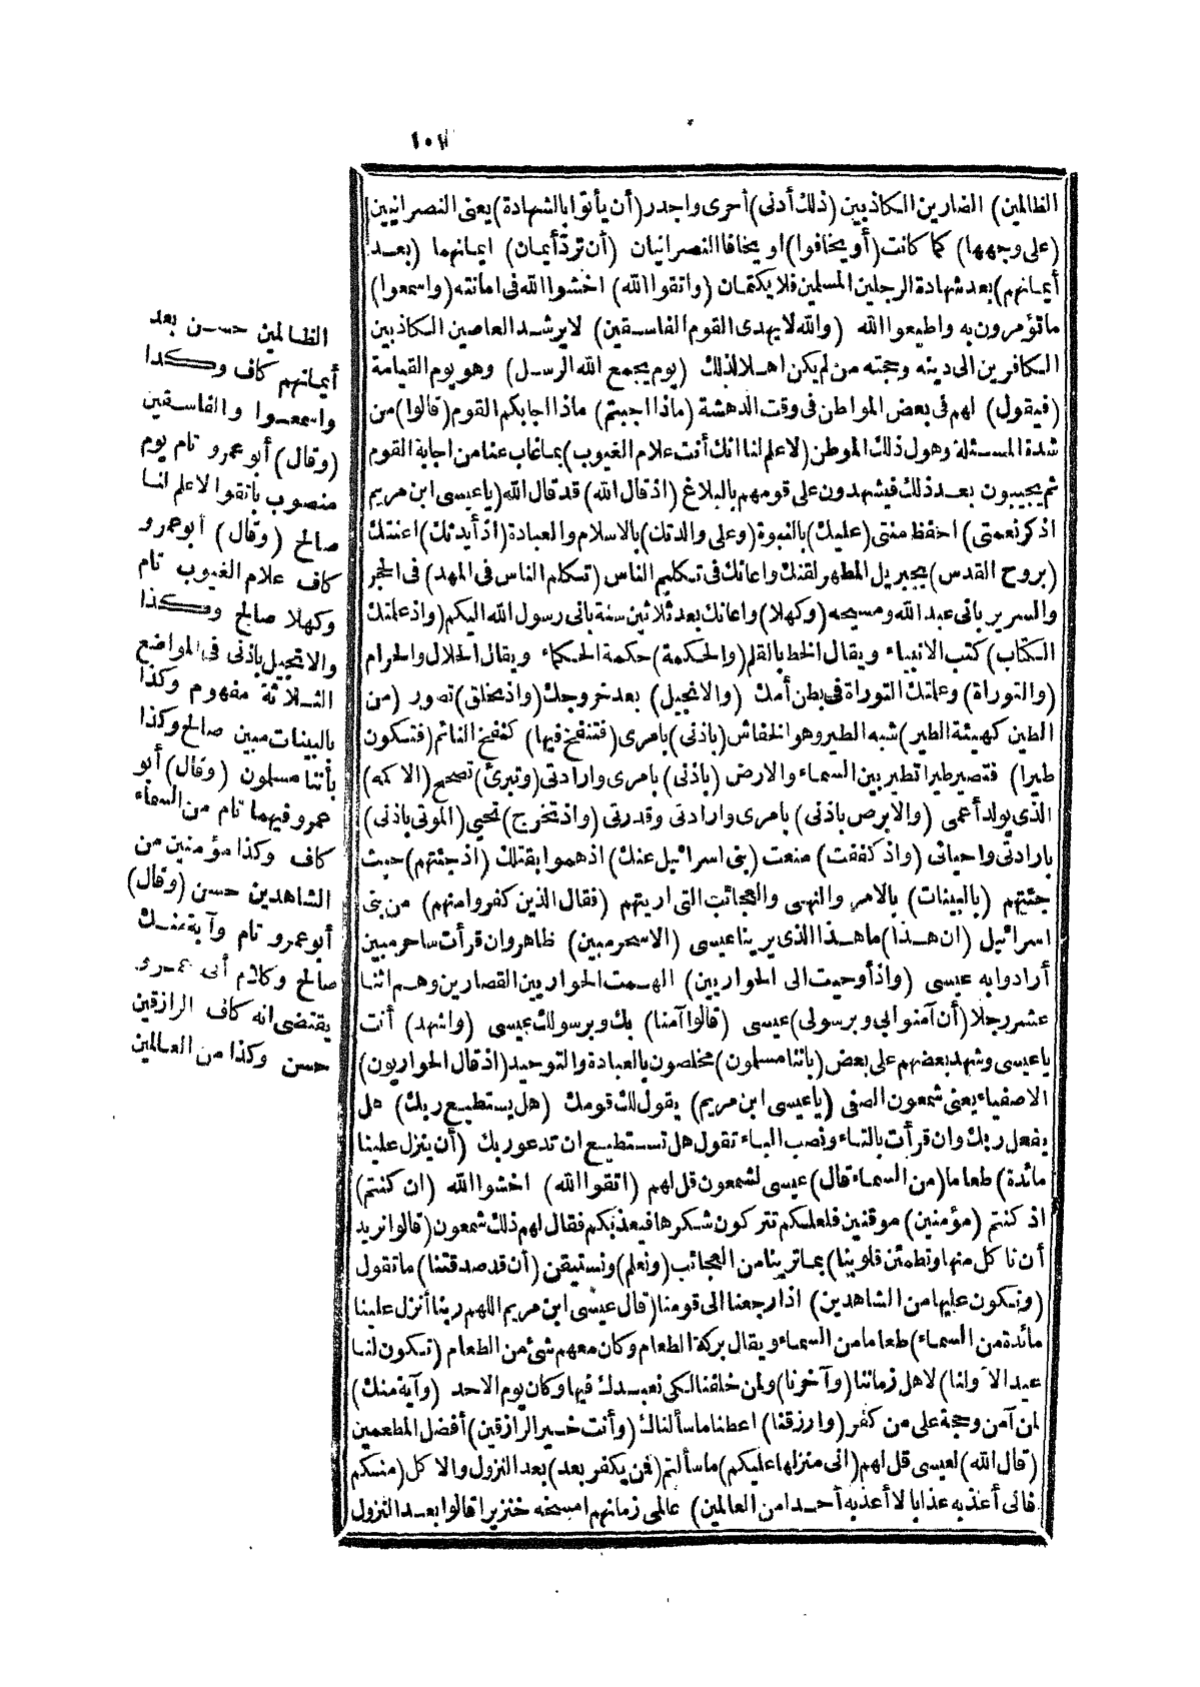 ١٠٧
الظالمين) الضارين الكاذبين (ذلك أدنى) أحرى واجدر (أن يأتوا بالشهادة) يعنى النصرانيين
(على وجهها) كما كانت (أو يخافوا) او يخافا النصرانيان (أن تردّ أيمان) ايمانهما (بعد
أيمانهم) بعد شهادة الرجلين المسلمين فلا يكتمان (واتقوا الله) اخشوا الله فى امانته (واسمعوا)
ما تؤمرون به واطيعوا الله (والله لا يهدى القوم الفاسقين) لا يرشد العاصين الكاذبين
الكافرين الى دينه وحجته من لم يكن اهلا لذلك (يوم يجمع الله الرسل) وهو يوم القيامة
(فيقول) لهم فى بعض المواطن فى وقت الدهشة (ماذا اجبتم) ماذا اجابكم القوم (قالوا) من
شدة المسئلة وهول ذلك الموطن (لا علم لنا انك أنت علام الغيوب) بما غاب عنا من اجابة القوم
ثم يجيبون بعد ذلك فيشهدون على قومهم بالبلاغ (اذ قال الله) قد قال الله (يا عيسى ابن مريم
اذكر نعمتى) احفظ منتى (عليك) بالنبوة (وعلى والدتك) بالاسلام والعبادة (اذ أيدتك) اعنتك
(بروح القدس) بجبريل المطهر لقنك واعانك فى تكليم الناس (تكلم الناس فى المهد) فى الحجر
والسرير بانى عبد الله ومسيحه (وكهلا) واعانك بعد ثلاثين سنة بانى رسول الله اليكم (واذ علمتك
الكتاب) كتب الانبياء ويقال الخط بالقلم (والحكمة) حكمة الحكماء ويقال الحلال والحرام
(والتوراة) وعلمتك التوراة فى بطن أمك (والانجيل) بعد خروجك (واذ تخلق) تصور (من
الطين كهيئة الطير) شبه الطير وهو الخفاش (باذنى) بامرى (فتنفخ فيها) كنفخ النائم (فتكون
طيرا) فتصير طيرا تطير بين السماء والارض (باذنى) بامرى وارادتى (وتبرئ) تصحح (الاكمه)
الذى يولد أعمى (والابرص باذنى) بامرى وارادتى وقدرتى (واذ تخرج) تحيى (الموتى باذنى)
بارادتى واحيائى (واذ كففت) منعت (بنى اسرائيل عنك) اذ هموا بقتلك (اذ جئتهم) حيث
جئتهم (بالبينات) بالامر والنهى والعجائب التى اريتهم (فقال الذين كفروا منهم) من بنى
اسرائيل (ان هذا) ما هذا الذى يرينا عيسى (الا سحر مبين) ظاهر وان قرأت ساحر مبين
أرادوا به عيسى (واذ أوحيت الى الحواريين) الهمت الحواريين القصارين وهم اثنا
عشر رجلا (أن آمنوا بى وبرسولى) عيسى (قالوا آمنا) بك وبرسولك عيسى (واشهد) أنت
يا عيسى وشهد بعضهم على بعض (باننا مسلمون) مخلصون بالعبادة والتوحيد (اذ قال الحواريون)
الاصفياء يعنى شمعون الصفى (يا عيسى ابن مريم) يقول لك قومك (هل يستطيع ربك) هل
يفعل ربك وان قرأت بالتاء ونصب الباء تقول هل تستطيع ان تدعو ربك (أن ينزل علينا
مائدة) طعاما (من السماء قال) عيسى لشمعون قل لهم (اتقوا الله) اخشوا الله (ان كنتم)
اذ كنتم (مؤمنين) موقنين فلعلكم تتركون شكرها فيعذبكم فقال لهم ذلك شمعون (قالوا نريد
أن نأكل منها وتطمئن قلوبنا) بما ترينا من العجائب (ونعلم) ونستيقن (أن قد صدقتنا) ما تقول
(ونكون عليها من الشاهدين) اذا رجعنا الى قومنا (قال عيسى ابن مريم اللهم ربنا أنزل علينا
مائدة من السماء) طعاما من السماء ويقال بركة الطعام وكان معهم شئ من الطعام (تكون لنا
عيدا لاولنا) لاهل زماننا (وآخرنا) ولمن خلفنا لكى نعبدك فيها وكان يوم الاحد (وآية منك)
لمن آمن وحجة على من كفر (وارزقنا) اعطنا ما سألناك (وأنت خير الرازقين) أفضل المطعمين
(قال الله) لعيسى قل لهم (انى منزلها عليكم) ما سألتم (فمن يكفر بعد) بعد النزول والاكل (منكم
فانى أعذبه عذابا لا أعذبه أحدا من العالمين) عالمى زمانهم امسخه خنزيرا قالوا بعد النزول
الظالمين حسن بعد
أيمانهم كاف وكذا
واسمعوا والفاسقين
(وقال) أبو عمرو تام يوم
منصوب باتقوا لا علم لنا
صالح (وقال) أبو عمرو
كاف علام الغيوب تام
وكهلا صالح وكذا
والانجيل باذنى فى المواضع
الثلاثة مفهوم وكذا
بالبينات مبين صالح وكذا
بأننا مسلمون (وقال) أبو
عمرو فيهما تام من السماء
كاف وكذا مؤمنين من
الشاهدين حسن (وقال)
أبو عمرو تام وآية منك
صالح وكلام أبى عمرو
يقتضى انه كاف الرازقين
حسن وكذا من العالمين